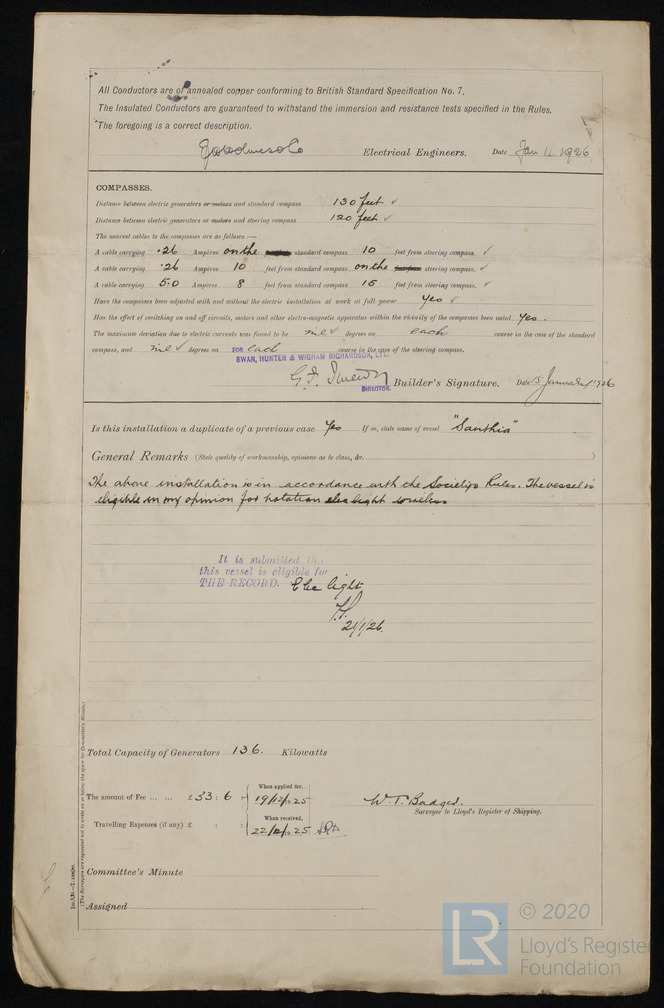 All Conductors are of annealed copper conforming to British Standard Specification No. 7.
The Insulated Conductors are guaranteed to withstand the immersion and resistance tests specified in the Rules.
The foregoing is a correct description.
Electrical Engineers. Date Jan 11 1926
COMPASSES.
Distance between electric generators or motors and standard compass 130 feet ✓
Distance between electric generators or motors and steering compass 120 feet ✓
The nearest cables to the compasses are as follows :—
A cable carrying .26 Ampères on the standard compass 10 feet from steering compass. ✓
A cable carrying .26 Ampères 10 feet from standard compass on the steering compass. ✓
A cable carrying 5.0 Ampères 8 feet from standard compass 15 feet from steering compass. ✓
Have the compasses been adjusted with and without the electric installation at work at full power Yes ✓
Has the effect of switching on and off circuits, motors and other electro-magnetic apparatus within the vicinity of the compasses been noted Yes.
The maximum deviation due to electric currents was found to be nil ✓ degrees on each course in the case of the standard
compass, and nil ✓ degrees on each course in the case of the steering compass.
FOR
SWAN, HUNTER & WIGHAM RICHARDSON, LTD.
DIRECTOR. Builder's Signature. Date 5 January 1926
Is this installation a duplicate of a previous case Yes If so, state name of vessel "Santhia"
General Remarks (State quality of workmanship, opinions as to class, &c. )
The above installation is in accordance with the Society's Rules. The vessel is
eligible in my opinion for notation elec light wireless
It is submitted
this vessel is eligible for
THE RECORD. Elec light
21/1/26.
Total Capacity of Generators 136. Kilowatts
The amount of Fee ... ... £ 33 : 6 :
When applied for,
19/12/1925
When received,
Travelling Expenses (if any) £ : :
22/12/1925
W. T. Badger.
Surveyor to Lloyd's Register of Shipping.
Committee's Minute
Assigned
(The Surveyors are requested not to write on or below the space for Committee's Minute.)
LR
© 2020
Lloyd's Register
Foundation